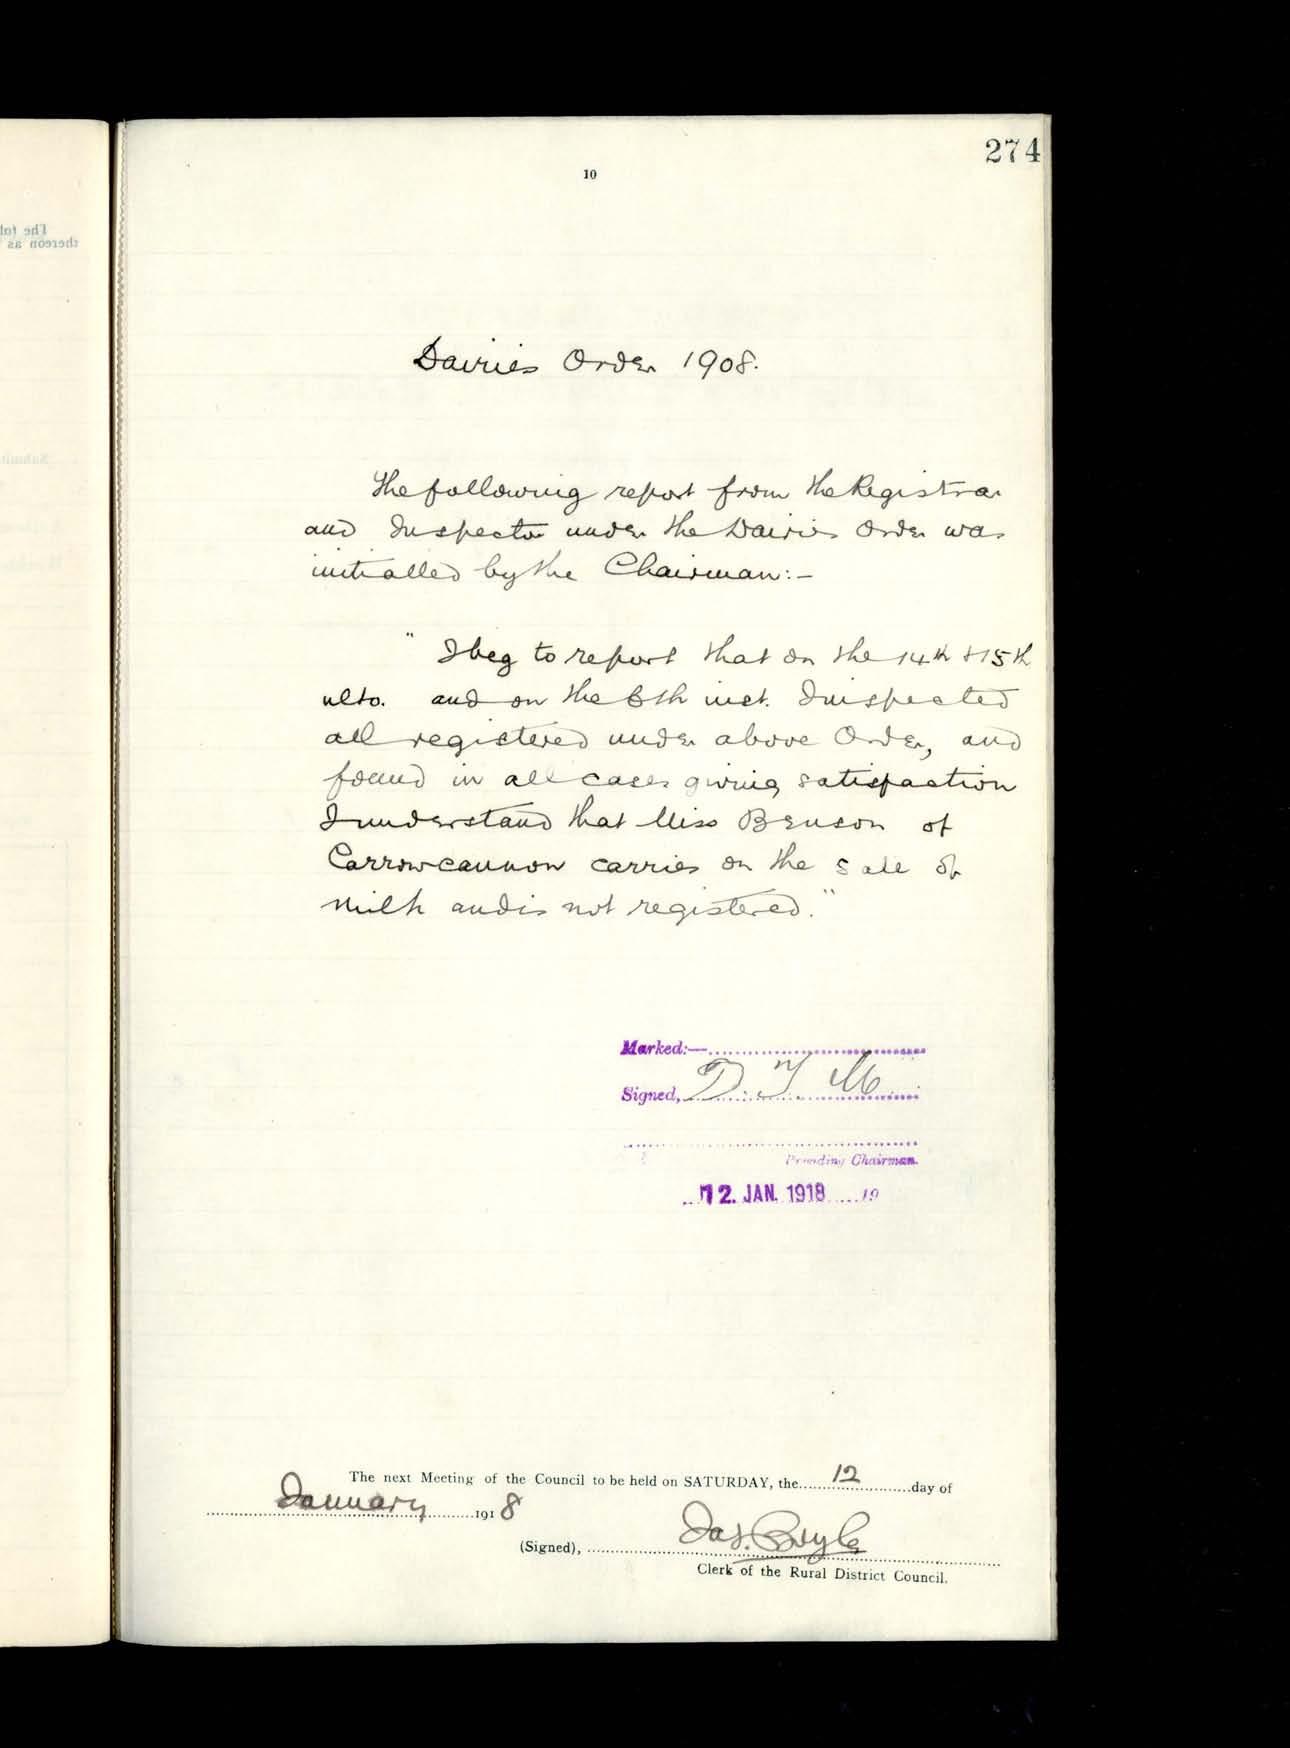 274
10
Dairies Order 1908.
The following report from the Registrar
and Inspector under the Dairies Order was
initialled by the Chairman:-
" I beg to report that on the 14th & 15th
ulto. and on the 6th inst. I inspected
all registered under above Order, and
found in all cases giving satisfaction
I understand that Miss Benson of
Carrowcannon carries on the sale of
milk and is not registered."
Marked:—
Signed, D. T. M
Presiding Chairman.
12. JAN. 1918 19
The next Meeting of the Council to be held on SATURDAY, the 12 day of
January 1918
(Signed), Jas. Boyle
Clerk of the Rural District Council.